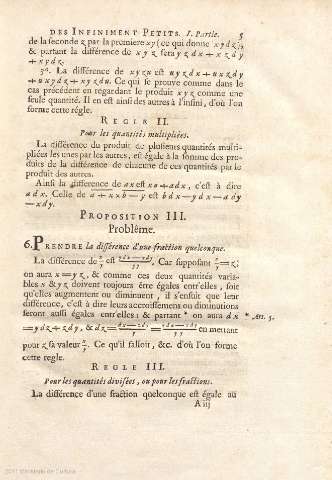 DES INFINIMENT PETITS. I. Partie. 5
de la seconde z par la premiere xy (ce qui donne xydz);
& partant la différence de xyz sera yzdx + xzdy
+ xydz.
3°. La différence de xyzu est uyzdx + uxzdy
+ uxydz + xyzdu. Ce qui se prouve comme dans le
cas précédent en regardant le produit xyz comme une
seule quantité. Il en est ainsi des autres à l'infini, d'où l'on
forme cette régle.
REGLE II.
Pour les quantités multipliées.
La différence du produit de plusieurs quantités multi-
pliées les unes par les autres, est égale à la somme des pro-
duits de la différence de chacune de ces quantités par le
produit des autres.
Ainsi la différence de ax est x0 + adx, c'est à dire
adx. Celle de a + x × b — y est bdx — ydx — ady
— xdy.
PROPOSITION III.
Problême.
6. PRENDRE la différence d'une fraction quelconque.
La différence de x/y est ydx — xdy/yy. Car supposant x/y = z;
on aura x = yz, & comme ces deux quantités varia-
bles x & yz doivent toujours être égales entr'elles, soit
qu'elles augmentent ou diminuent, il s'ensuit que leur
différence, c'est à dire leurs accroissemens ou diminutions
seront aussi égales entr'elles; & partant * on aura dx * Art. 5.
= ydz + zdy, & dz = dx — zdy/y = ydx — xdy/yy en mettant
pour z sa valeur x/y. Ce qu'il falloit, &c. d'où l'on forme
cette regle.
REGLE III.
Pour les quantités divisées, ou pour les fractions.
La différence d'une fraction quelconque est égale au
A iij